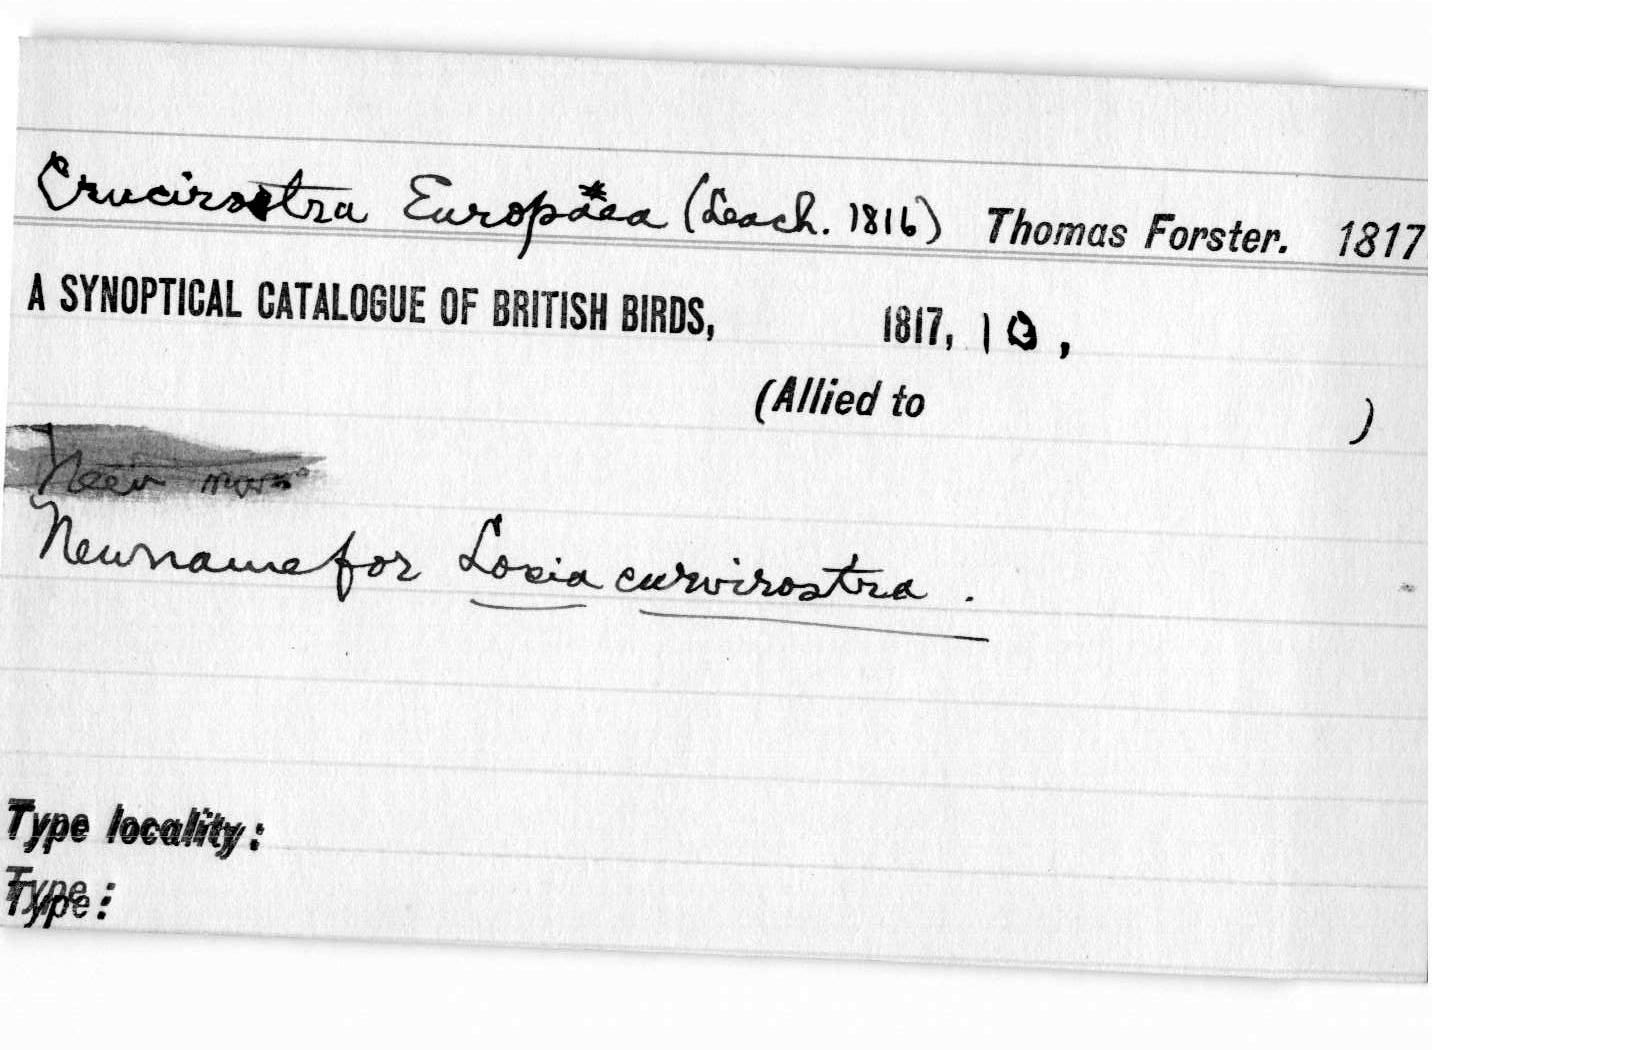 Crucirostra Europaea (Leach. 1816) Thomas Forster. 1817
A SYNOPTICAL CATALOGUE OF BRITISH BIRDS, 1817, 1 ,
(Allied to )
New
New name for Loxia curvirostra .
Type locality:
Type: